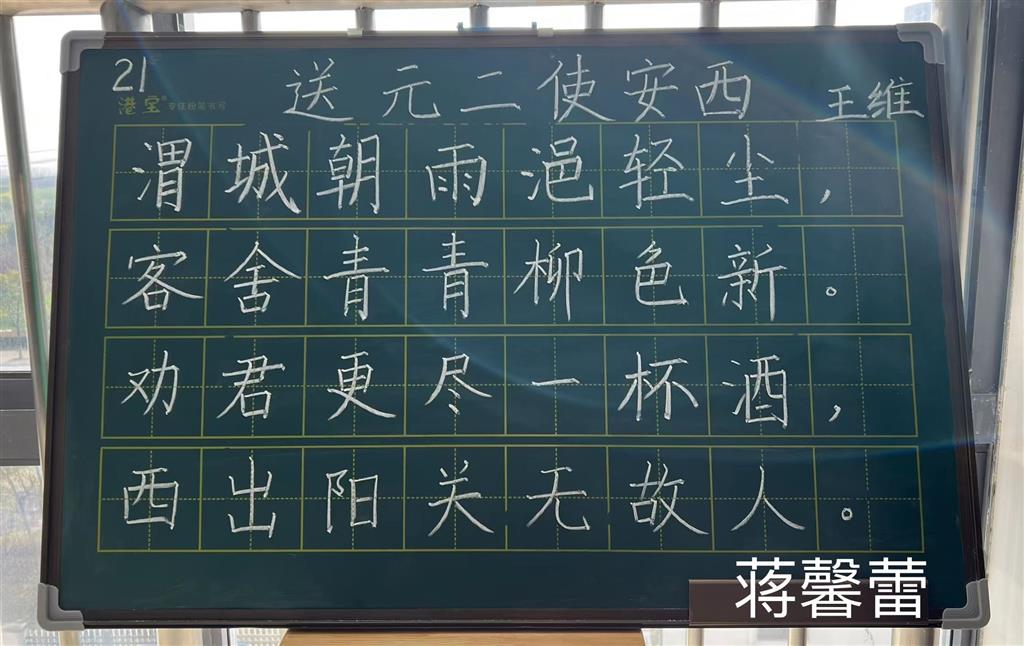 21
港宝® 专注粉笔书写
送元二使安西 王维
渭城朝雨浥轻尘，
客舍青青柳色新。
劝君更尽一杯酒，
西出阳关无故人。
蒋馨蕾